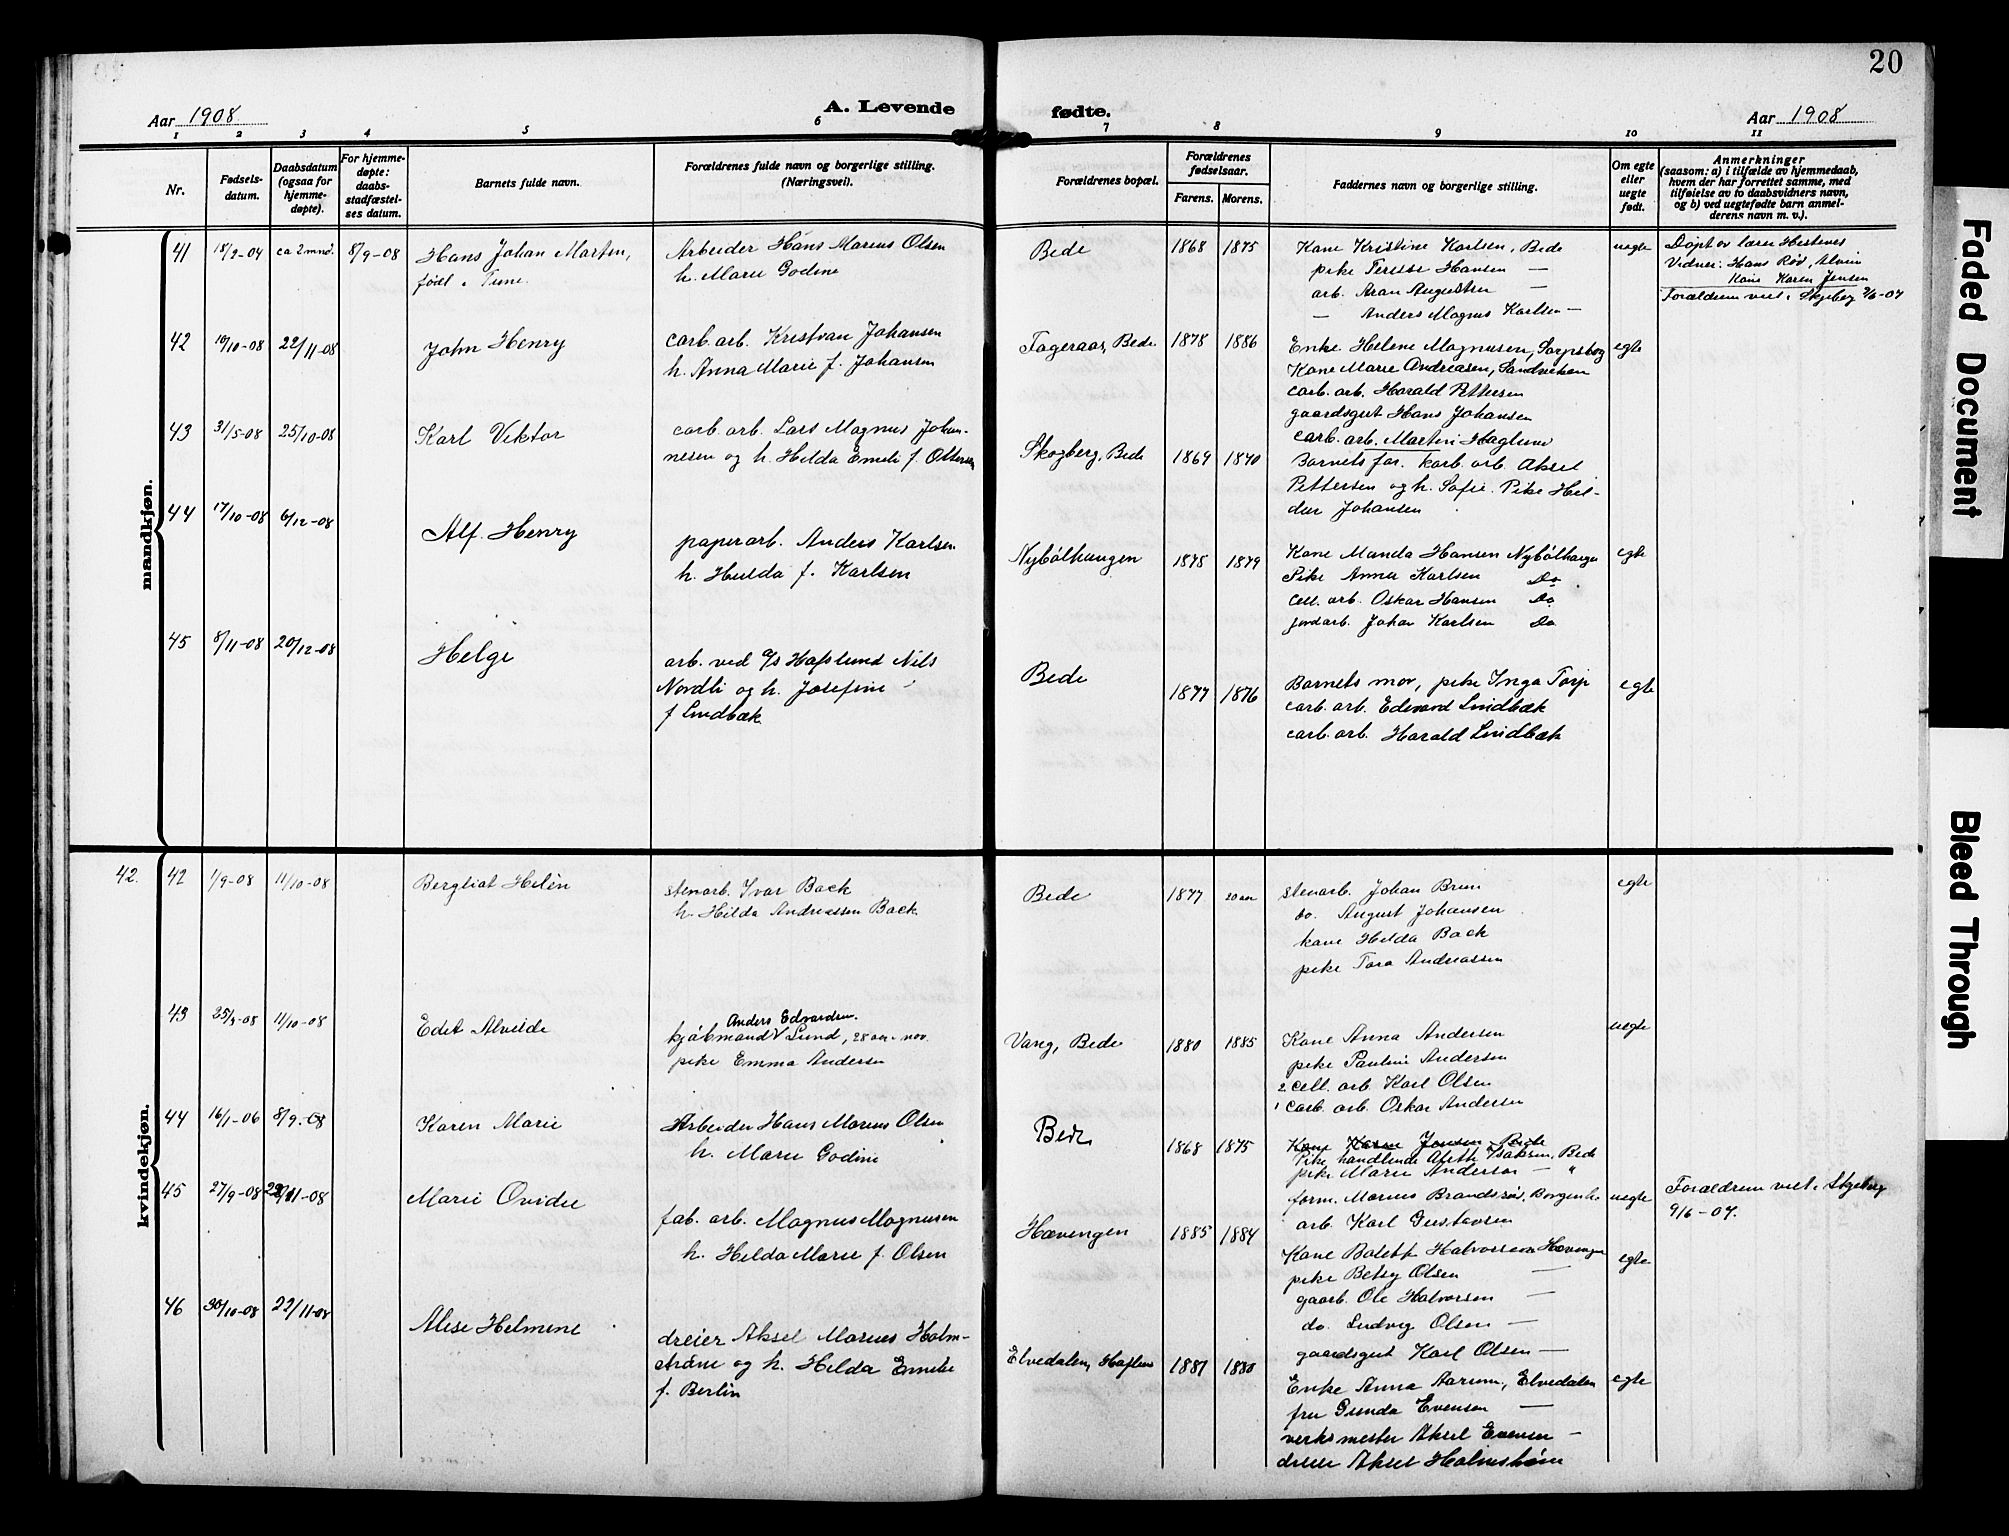 20
A. Levende fødte.
Aar 1908
Aar 1908
1 2 3 4 5 6 7 8 9 10 11
Nr.
Fødsels-
datum.
Daabsdatum
(ogsaa for
hjemme-
døpte).
For hjemme-
døpte:
daabs-
stadfæstel-
ses datum.
Barnets fulde navn.
Forældrenes fulde navn og borgerlige stilling.
(Næringsvei).
Forældrenes bopæl.
Forældrenes
fødselsaar.
Farens. Morens.
Faddernes navn og borgerlige stilling.
Om egte
eller
uegte
født.
Anmerkninger
(saasom: a) i tilfælde av hjemmedaab,
hvem der har forrettet samme, med
tilføielse av to daabsvidners navn,
og b) ved uegtefødte barn anmel-
derens navn m. v.).
mandkjøn.
41 18/2-04 ca 2 mnd. 8/9-08
Hans Johan Marten,
født i Tune.
Arbeider Hans Marius Olsen
h. Marie Godine
Bede 1868 1875
Kone Kristine Karlsen, Bede
pike Terese Hansen —
arb. Aran Augustsen —
— Anders Magnus Karlsen —
uegte
Døpt av lærer Hestenes
Vidner: Hans Rød, Alvim
Kone Karen Jensen
Forældrene viet i Skjeberg 9/6-07
42 19/10-08 22/11-08
John Henry
carb. arb. Kristian Johansen
h. Anna Marie f. Johansen
Fageraas, Bede 1878 1886
Enke Helene Magnusen, Sarpsborg
Kone Marie Andreasen, Sandviken
carb. arb. Harald Pettersen
gaardsgut Hans Johansen
egte
43 31/5-08 25/10-08
Karl Viktor
carb. arb. Lars Magnus Johan-
nesen og h. Hilda Emeli f. Olsen
Skogberg, Bede 1869 1870
carb. arb. Martin Haglund
Barnets far. karb. arb. Aksel
Pettersen og h. Sofie. Pike Hil-
dur Johansen
44 17/10-08 6/12-08
Alf Henry
papirarb. Anders Karlsen
h. Hulda f. Karlsen
Nybølhaugen 1875 1879
Kone Manda Hansen Nybølhaugen
Pike Anna Karlsen Do
Cell. arb. Oskar Hansen Do
jordarb. Johan Karlsen Do
egte
45 8/11-08 20/12-08
Helge
arb. ved A/S Hafslund Nils
Nordli og h. Josefine
f Lindbæk
Bede 1877 1876
Barnets mor, pike Inga Torp
carb. arb. Edvard Lindbæk
carb. arb. Harald Lindbæk
egte
kvindekjøn.
42. 42 1/9-08 11/10-08
Bergliot Helén
stenarb. Ivar Back
h. Hilda Andreassen Back
Bede 1877 20 aar
stenarb. Johan Brun
do. August Johansen
kone Hilda Back
pike Tora Andreassen
egte
43 25/3-08 11/10-08
Edet Alvilde
Anders Edvardsen
kjøbmand V Lund, 28 aar i nov.
pike Emma Andersen
Vang, Bede 1880 1885
Kone Anna Andersen
pike Pauline Andersen
2 cell. arb. Karl Olsen
1 carb. arb. Oskar Andersen
uegte
44 16/1-06 8/9-08
Karen Marie
Arbeider Hans Marius Olsen
h. Marie Godine
Bede 1868 1875
Kone Karen Jensen, Bede
Pike handlende Aleth Isaksen, Bede
pike Marie Anderson — "
form. Marius Brandsrød, Borgenh.
arb. Karl Gustavsen
uegte
Forældrene viet i Skjeberg
9/6-07.
45 27/9-08 22/11-08
Marie Ovidie
fab. arb. Magnus Magnusen
h. Hilda Marie f. Olsen
Hævingen 1885 1884
Kone Bolette Halvorsen Hævingen
pike Betsy Olsen —
gaarb. Ole Halvorsen —
do. Ludvig Olsen —
gaardsgut Karl Olsen —
egte
46 30/10-08 22/11-08
Alise Helmine
dreier Aksel Marius Holm-
strøm og h. Hilda Emilie
f. Berlin
Elvedalen, Hafslund 1881 1880
Enke Anna Aarum, Elvedalen
fru Gunda Evensen —
verksmester Aksel Evensen —
dreier Aksel Holmstrøm
egte
Faded Document
Bleed Through